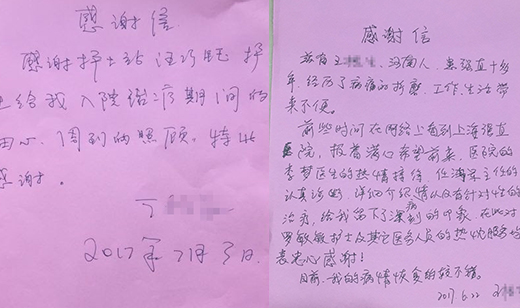 感谢信
感谢护士站汪巧 护
给我入院治疗期间的
周到的照顾。特此
感谢。
丁
2017年7月3日.
感谢信
兹有王 ，河南人，患强直十多
年，经历了病痛的折磨，工作、生活带
来不便。
前些时间在网络上看到上海强直
医院，报着满心希望前来，医院的
李梦医生的热情接待，任 主任的
认真诊断，详细介绍病情以及有针对性的
治疗，给我留下了深刻的印象，在此对
罗敏敏护士及其它医务人员的热忱服务均
表衷心感谢！
目前，我的病情恢复的较不错。
2017.6.22